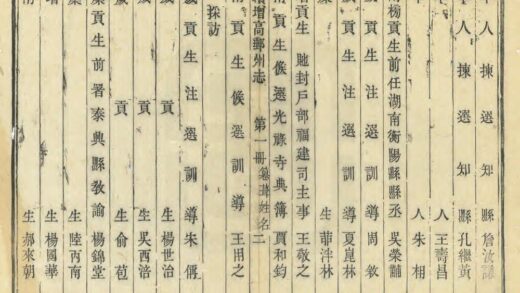 人揀選知縣詹汝
人揀選知縣孔繼黃
人王壽昌
人朱相
貢生前任湖南衡陽縣縣丞吳榮黼
貢生注選訓導周敘
貢生注選訓導夏崑林
生茆泮林
貢生貤封戶部福建司主事王敬之
貢生候選光祿寺典簿賈和鈞
增高郵州志 第一冊纂葺姓名 二
貢生候選訓導王之
採訪
貢生注選訓導朱
貢生楊世治
貢生吳西涪
貢生俞苞
貢生前署泰興縣教諭楊錦堂
生陸丙南
生楊國華
生郝來朝